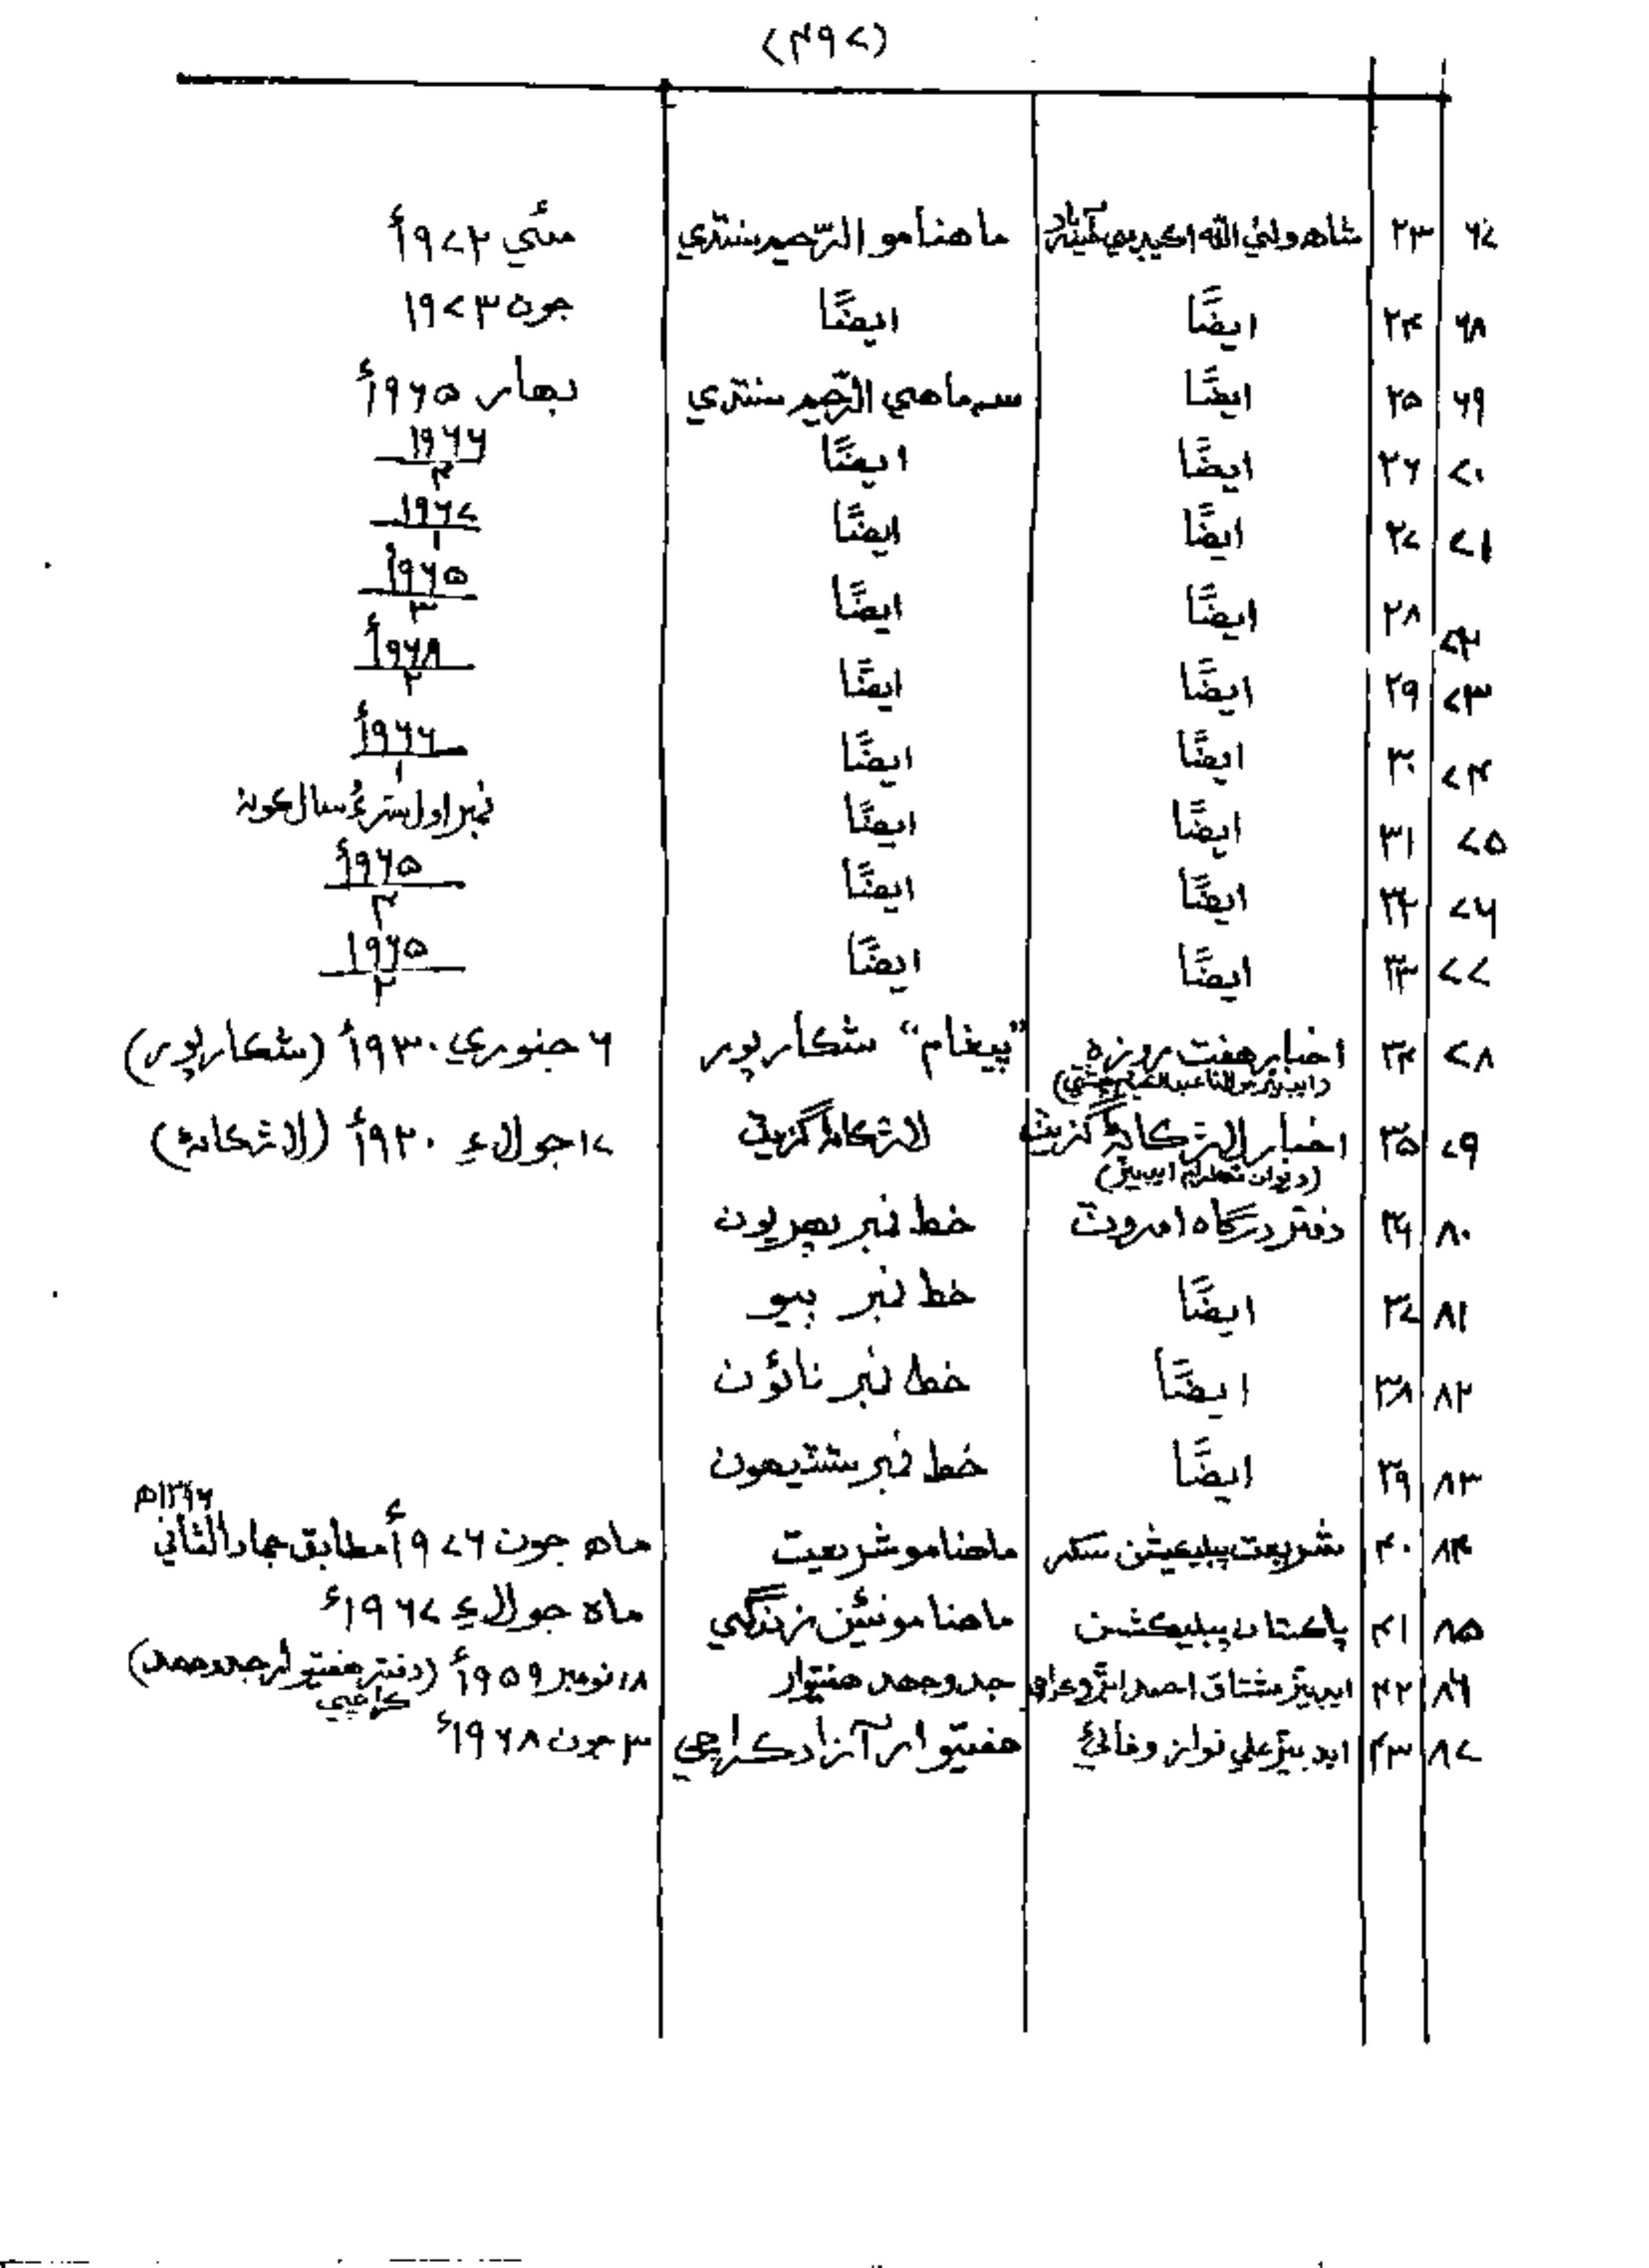 (۴۹۷)
۶۷ ۲۳ شاهه ولي الله اڪيڊمي ماهنامو الرّحيم سنڌي مئي ۱۹۷۲ع
۶۸ ۲۴ ايضًا ايضًا جون ۱۹۷۳
۶۹ ۲۵ ايضًا سہ ماهي الرّحيم سنڌي بهار ۱۹۶۵ع
۷۰ ۲۶ ايضًا ايضًا ۱۹۶۶/۴
۷۱ ۲۷ ايضًا ايضًا ۱۹۶۷/۱
۷۲ ۲۸ ايضًا ايضًا ۱۹۶۵ع/۳
۷۳ ۲۹ ايضًا ايضًا ۱۹۶۸ع/۲
۷۴ ۳۰ ايضًا ايضًا ۱۹۶۶ع/۱
۷۵ ۳۱ ايضًا ايضًا نمبر اول سال
۷۶ ۳۲ ايضًا ايضًا ۱۹۶۵ع/۴
۷۷ ۳۳ ايضًا ايضًا ۱۹۶۵/۲
۷۸ ۳۴ اخبار هفت روزه "پيغام" شڪارپور ۶ جنوري ۱۹۳۰ع (شڪارپور)
۷۹ ۳۵ اخبار لاڙڪاڻہ گزيٽ لاڙڪاڻہ گزيٽ ۱۷ جولاءِ ۱۹۲۰ع (لاڙڪاڻہ)
۸۰ ۳۶ دفتر درگاه امروٽ خط نمبر پهريون
۸۱ ۳۷ ايضًا خط نمبر ٻيو
۸۲ ۳۸ ايضًا خط نمبر نائون
۸۳ ۳۹ ايضًا خط نمبر
۱۳۹۶ھ
۸۴ ۴۰ شريعت پبليڪيشن سکر ماهنامو شريعت ماه جون ۱۹۷۶ع مطابق جماد الثاني
۸۵ ۴۱ پاڪستان پبليڪشن ماهنامو نئين زندگي ماه جولاءِ ۱۹۶۷ع
۸۶ ۴۲ ايڊيٽر مشتاق احمد جدوجهد هفتيوار ۱۸ نومبر ۱۹۵۹ع (دفتر هفتيوار جدوجهد)
ڪراچي
۸۷ ۴۳ ايڊيٽر علي نواز وفائي هفتيوار آزاد ڪراچي ۳ جون ۱۹۶۸ع